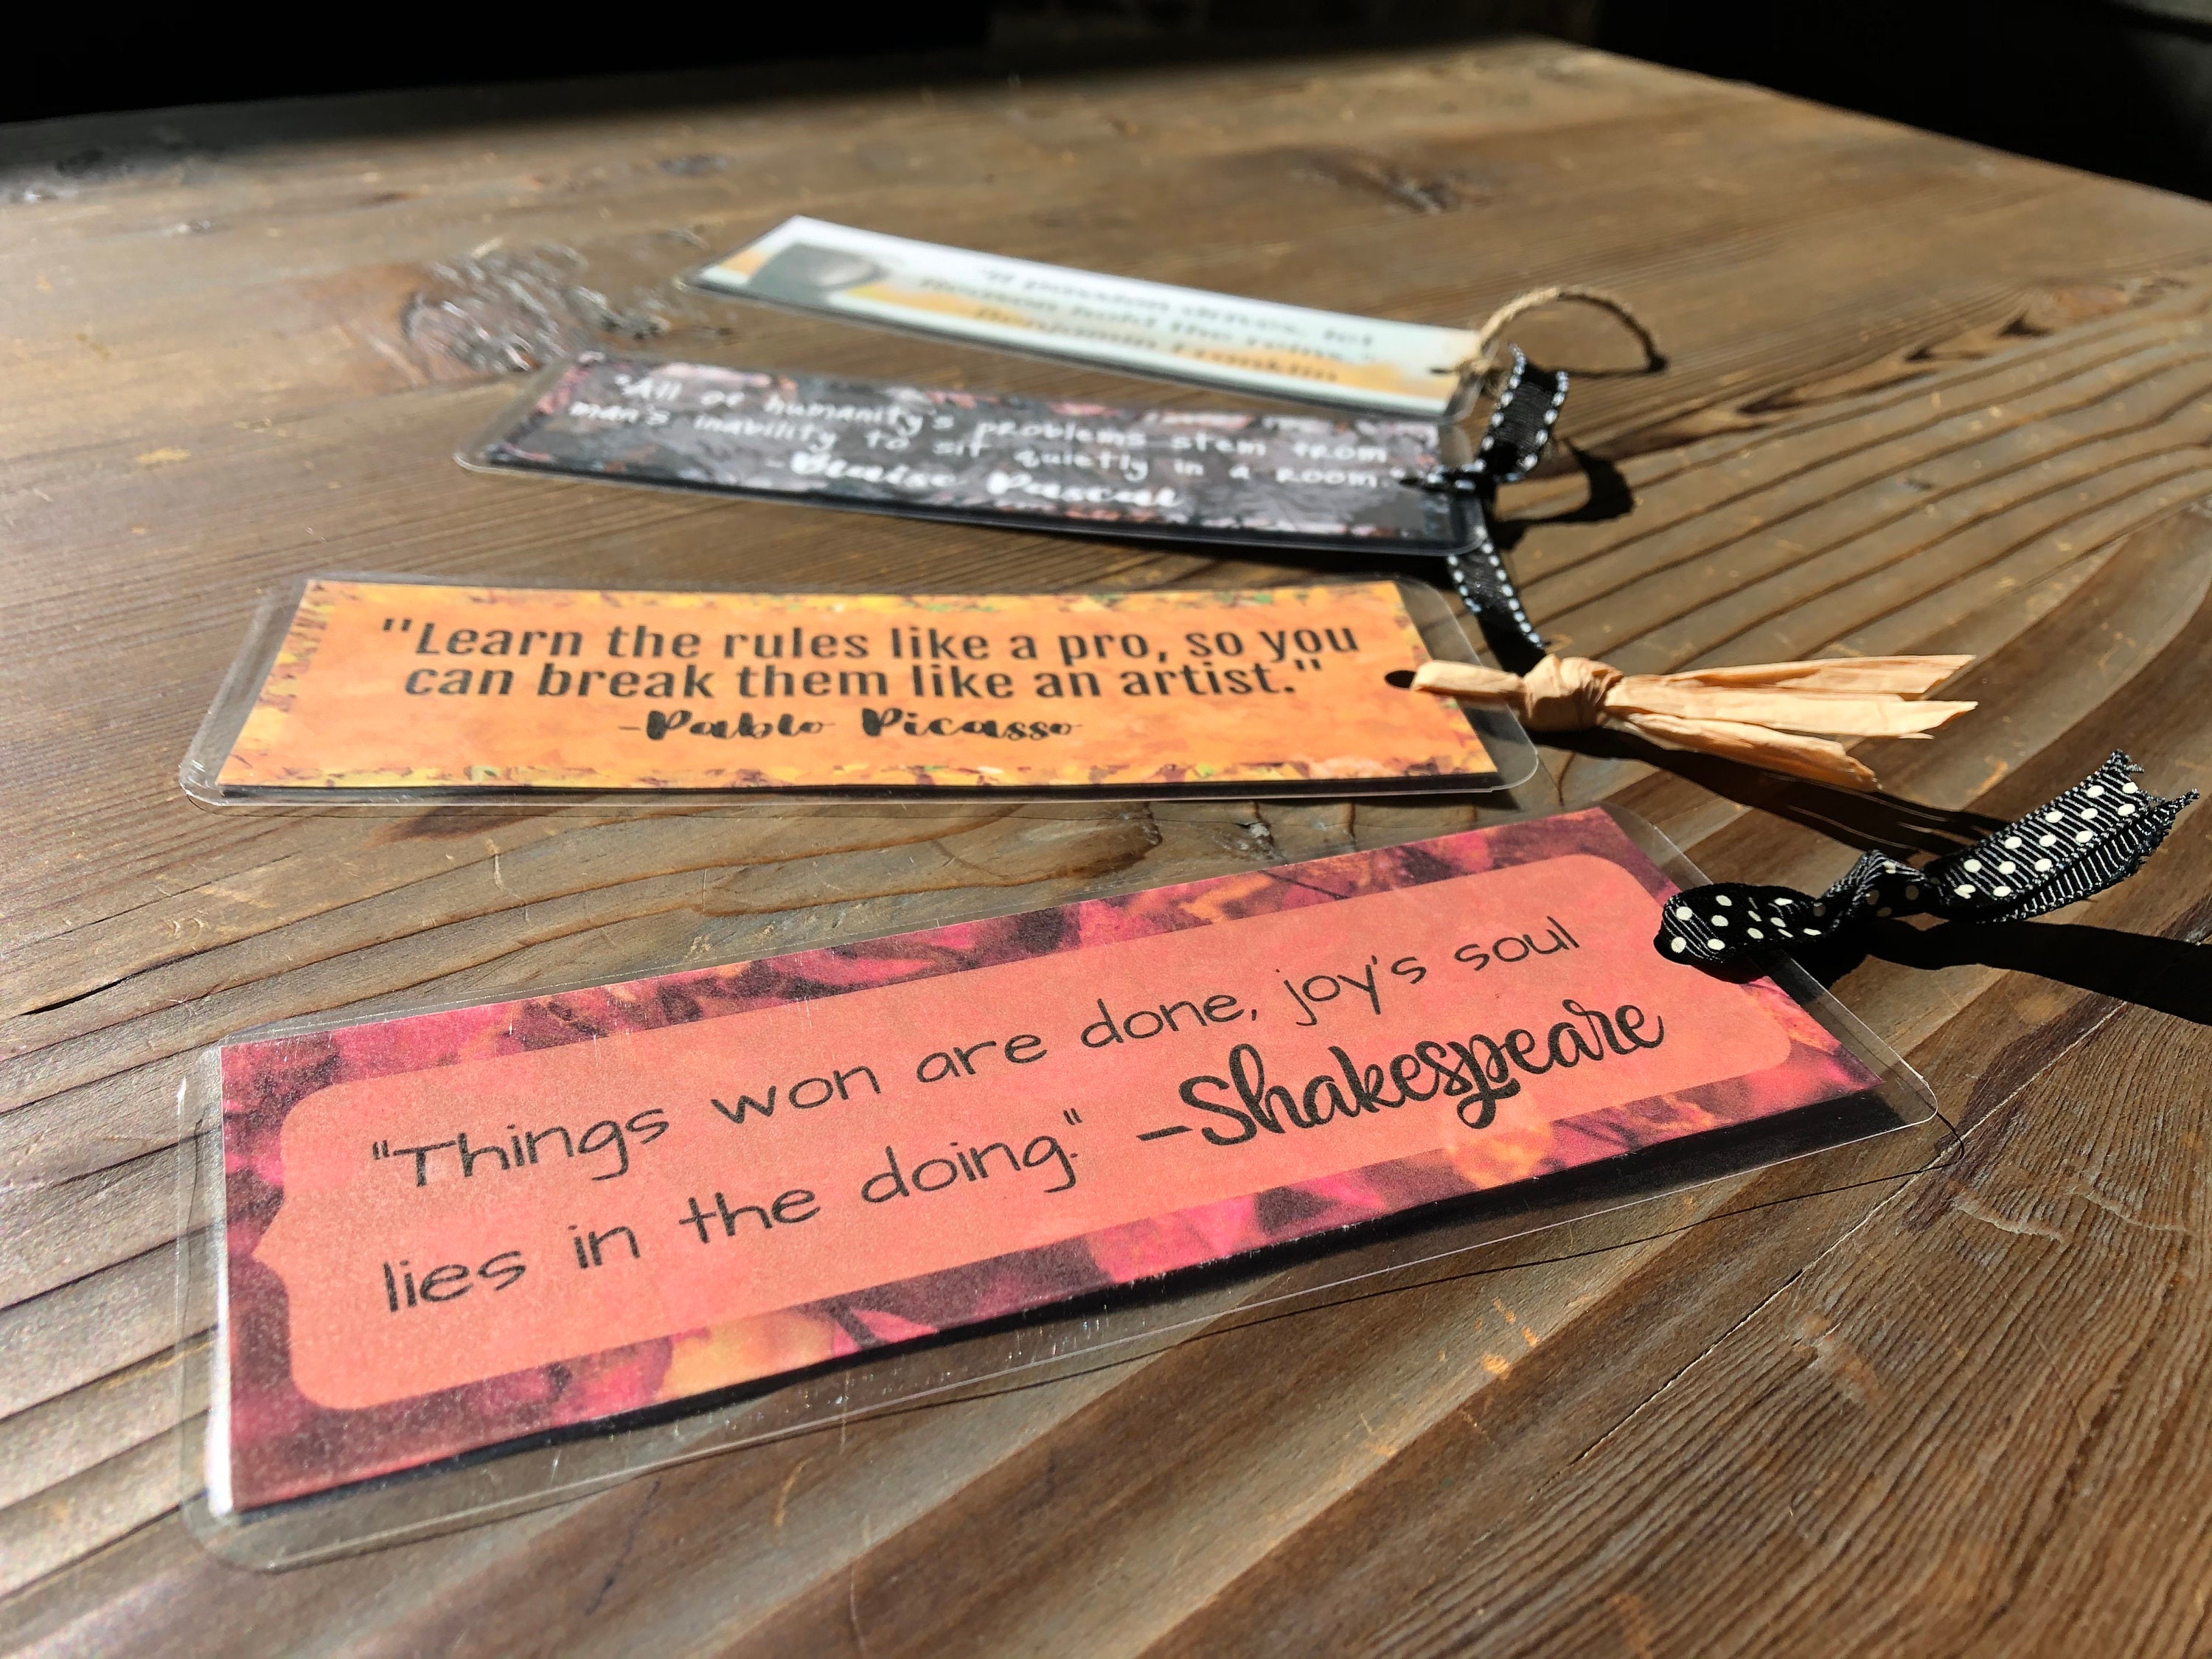 "If passion drives, let
Reason hold the reins."
-Benjamin Franklin
"All of humanity's problems stem from
man's inability to sit quietly in a room."
-Blaise Pascal
"Learn the rules like a pro, so you
can break them like an artist."
-Pablo Picasso
"Things won are done, joy's soul
lies in the doing." -Shakespeare